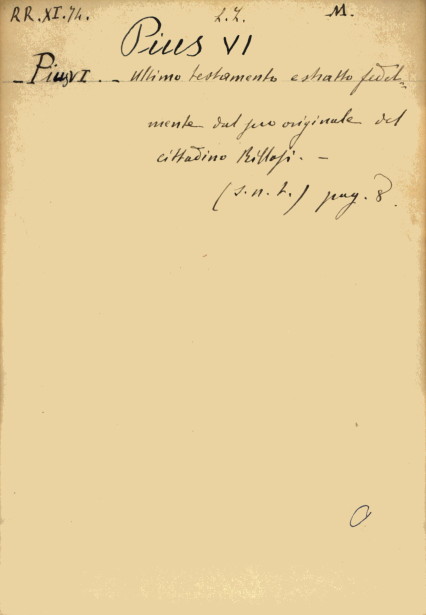 RR.XI.74. L.Z. M.
Pius VI
- Pius VI. - Ultimo testamento estratto fedel=
mente dal suo originale del
cittadino -
(s.n.t.) pag. 8.